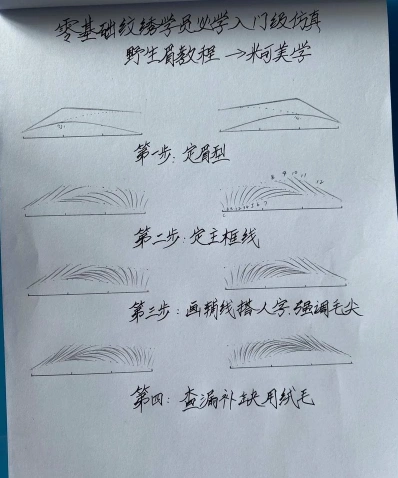 零基础纹绣学员必学入门级仿真
野生眉教程 →柯美学
第一步: 定眉型
第二步: 定主框线
8 9 10 11 12
第三步: 画辅线搭人字.强调毛尖
第四: 查漏补缺用绒毛